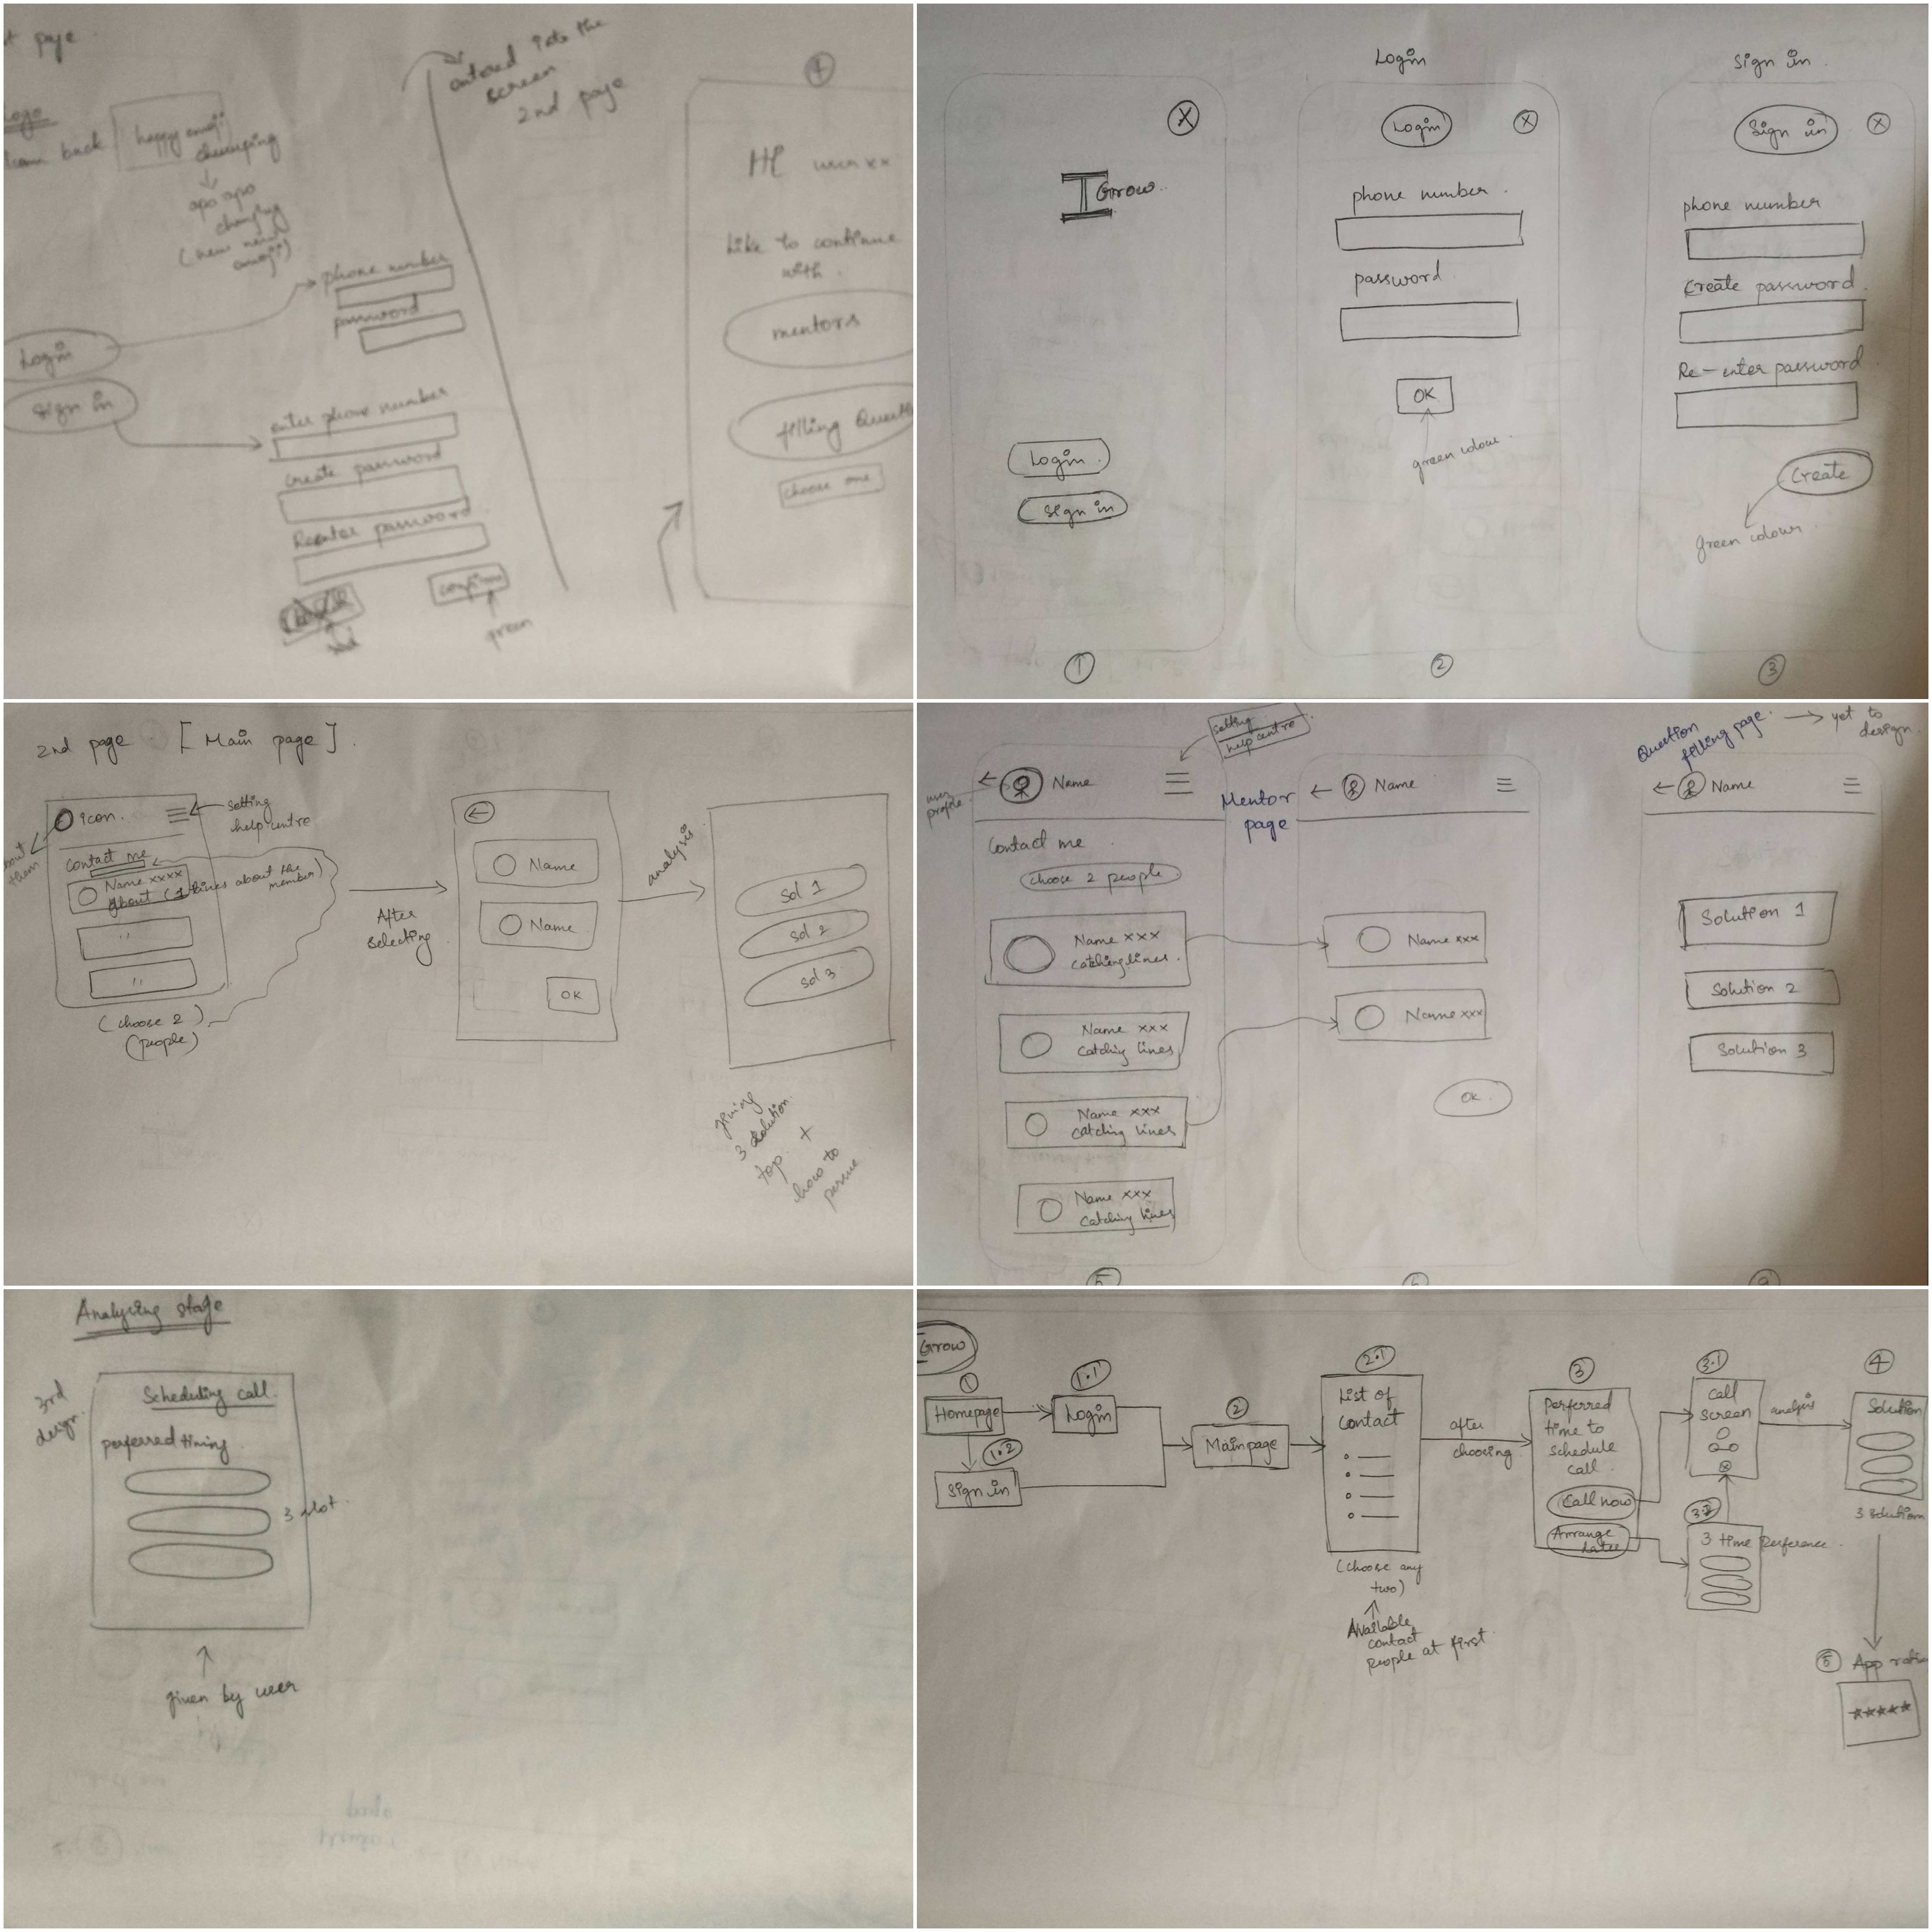 page
Logo
back
happy emoji
changing
apo apo
changing
(new new
emoji)
entered into the
screen
2nd page
phone number
password
Login
Sign in
enter phone number
Create password
Reenter password
confirm
green
4
HI user xx
Like to continue
with
mentors
filling Questi
choose one
Login
Sign in
X
I Grow
Login
Sign in
1
Login
X
phone number
password
OK
green colour
2
Sign in
X
phone number
Create password
Re-enter password
Create
green colour
3
2nd page [Main page]
icon
setting
help centre
them
Contact me
Name xxxx
about (1 lines about the
member)
"
"
(choose 2)
(people)
After
selecting
Name
Name
OK
analysis
sol 1
sol 2
sol 3
giving
3 solution
top +
how to
pursue
setting
help centre
user
profile
Name
Contact me
choose 2 people
Name xxx
catching lines
Name xxx
catching lines
Name xxx
catching lines
Name xxx
catching lines
5
Mentor
page
Name
Name xxx
Name xxx
OK
6
Question
filling page
yet to
design
Name
Solution 1
Solution 2
Solution 3
Analysing stage
3rd
design
Scheduling call
perferred timing
3 slot
given by user
Grow
1
Homepage
1.1
Login
1.2
Sign in
2
Mainpage
2.1
List of
Contact
(choose any
two)
Available
contact
people at first
after
choosing
3
perferred
time to
schedule
call
Call now
Arrange
later
3.1
Call
screen
3.2
3 time perference
analysis
4
Solution
3 solution
5 App ratin
★★★★★